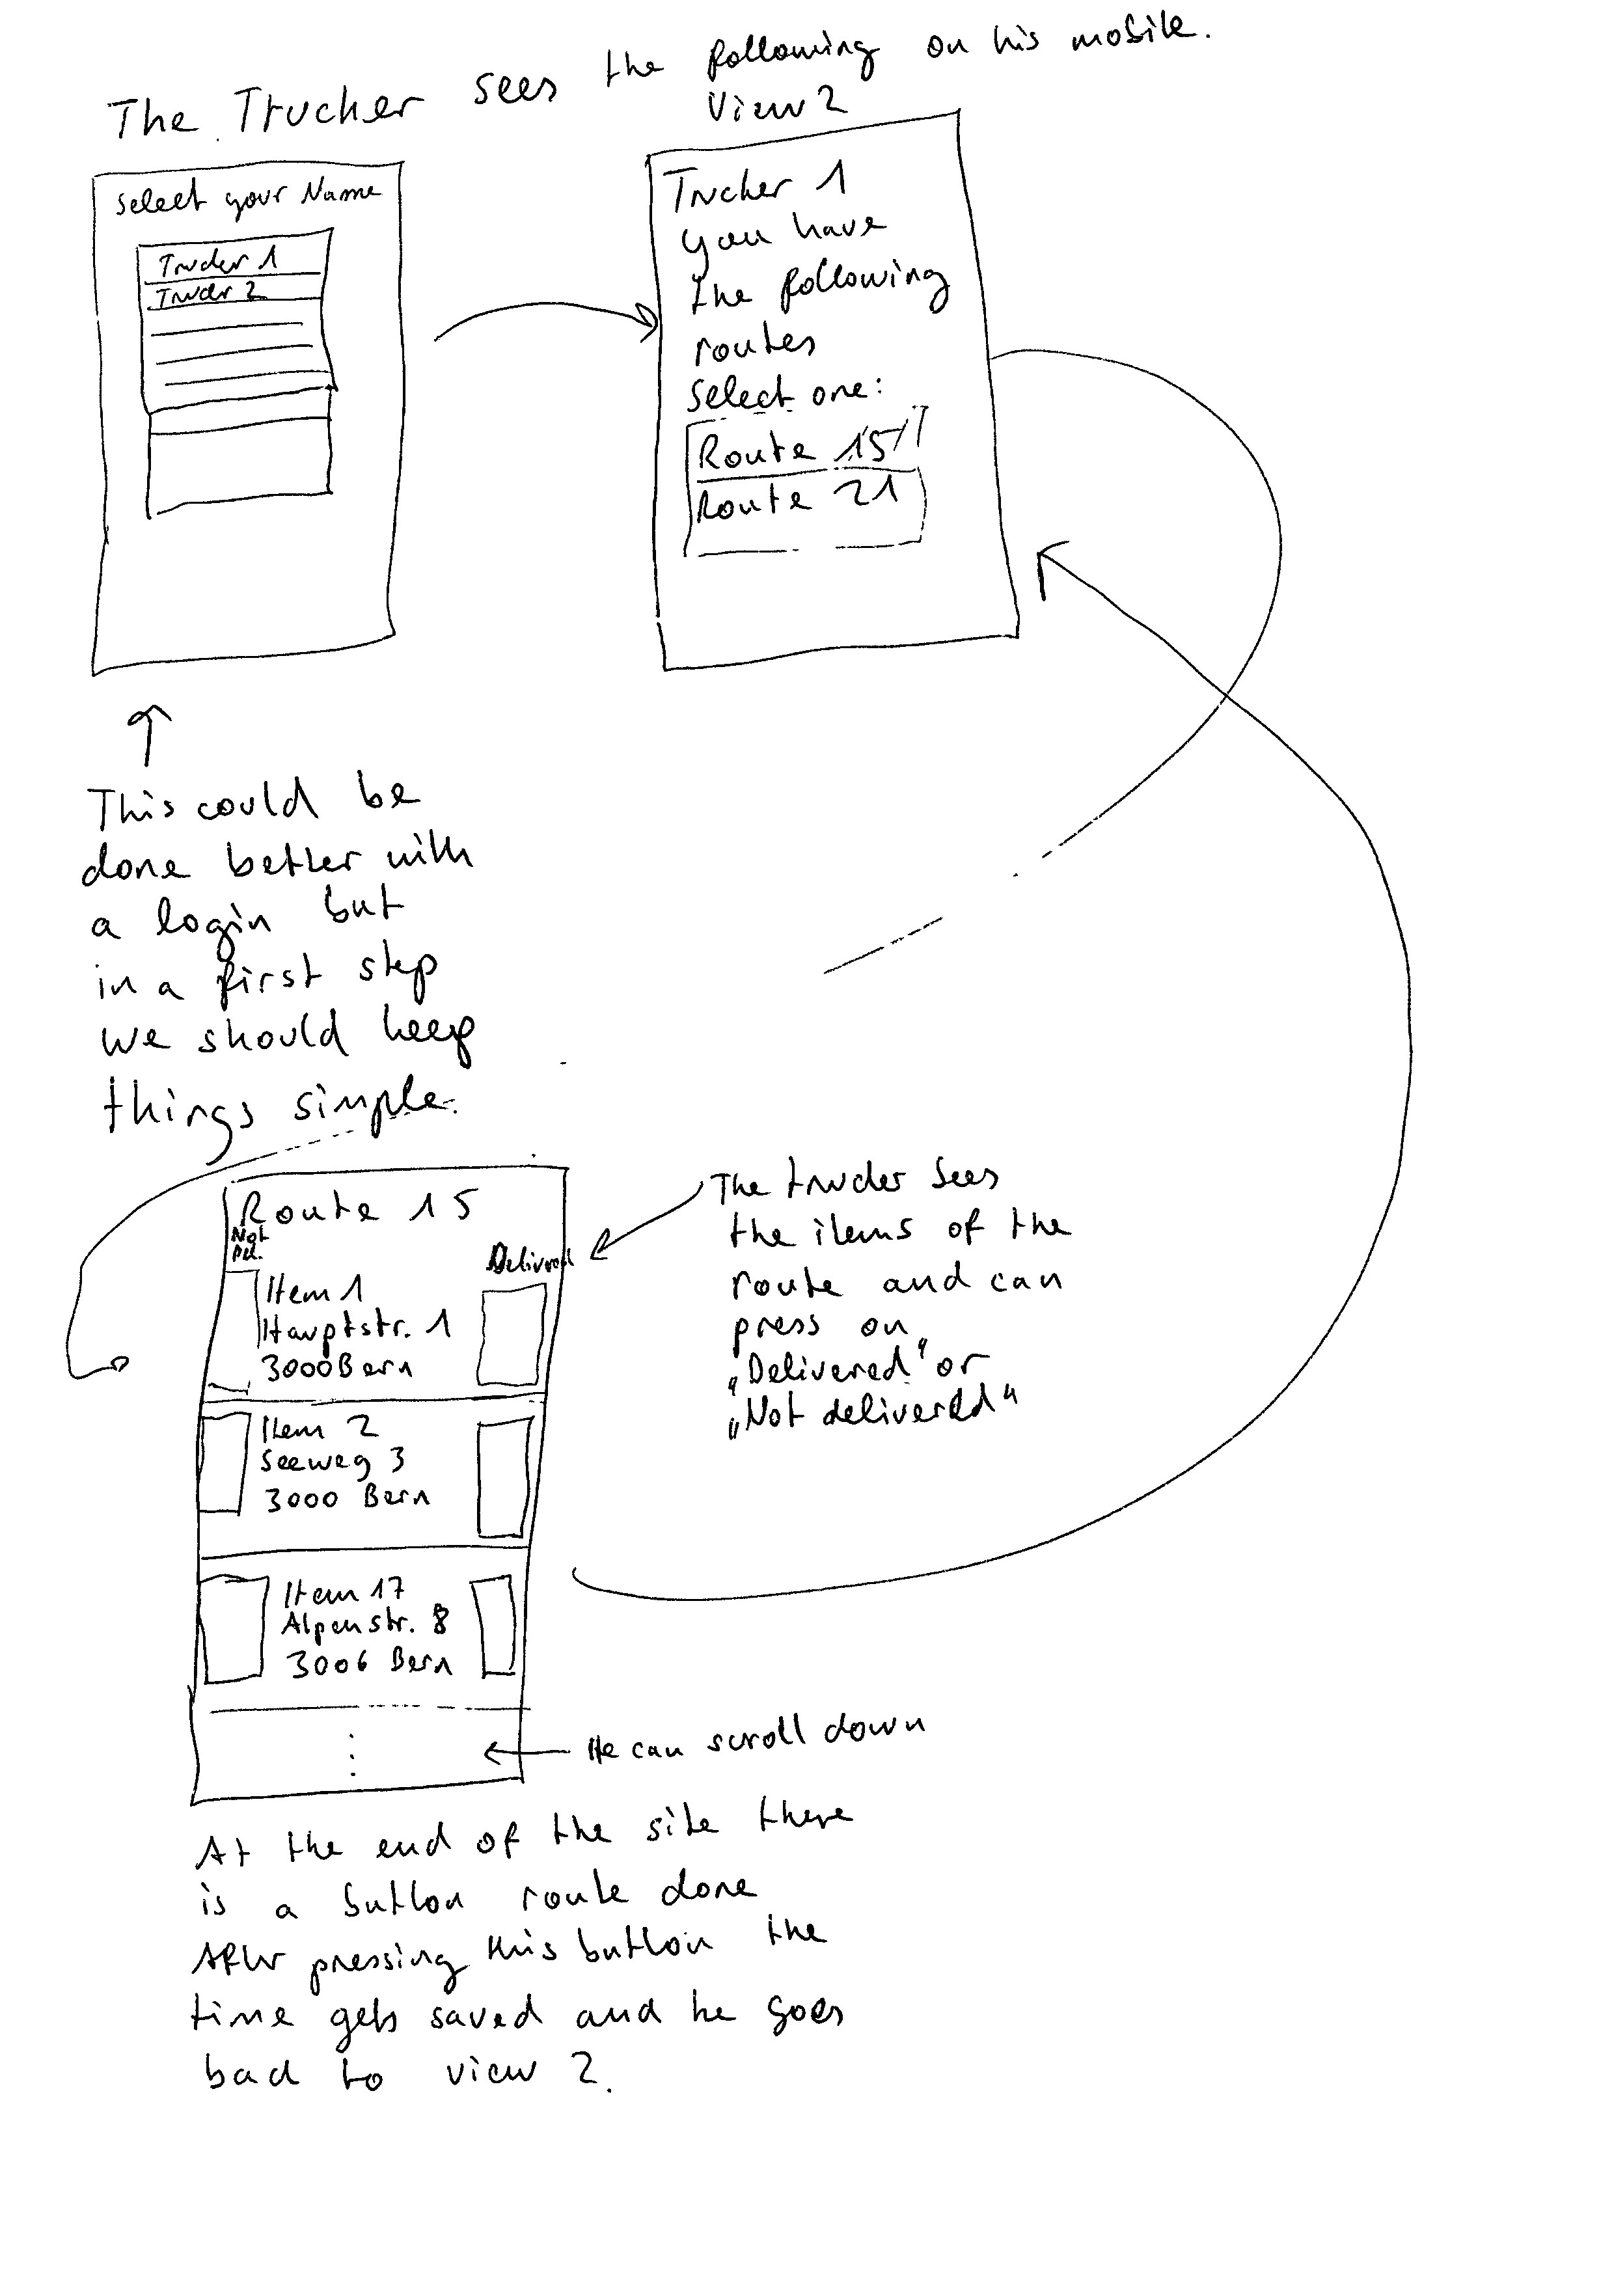 The Trucker sees the following on his mobile.
View 2
Select your Name
Trucker 1
Trucker 2
Trucker 1
you have
the following
routes
Select one:
Route 15
Route 21
This could be
done better with
a login but
in a first step
we should keep
things simple.
Route 15
Not
Del.
Delivered
Item 1
Hauptstr. 1
3000 Bern
Item 2
Seeweg 3
3000 Bern
Item 17
Alpenstr. 8
3006 Bern
The trucker sees
the items of the
route and can
press on
„Delivered“ or
„Not delivered“
He can scroll down
At the end of the site there
is a button route done
After pressing this button the
time gets saved and he goes
back to view 2.